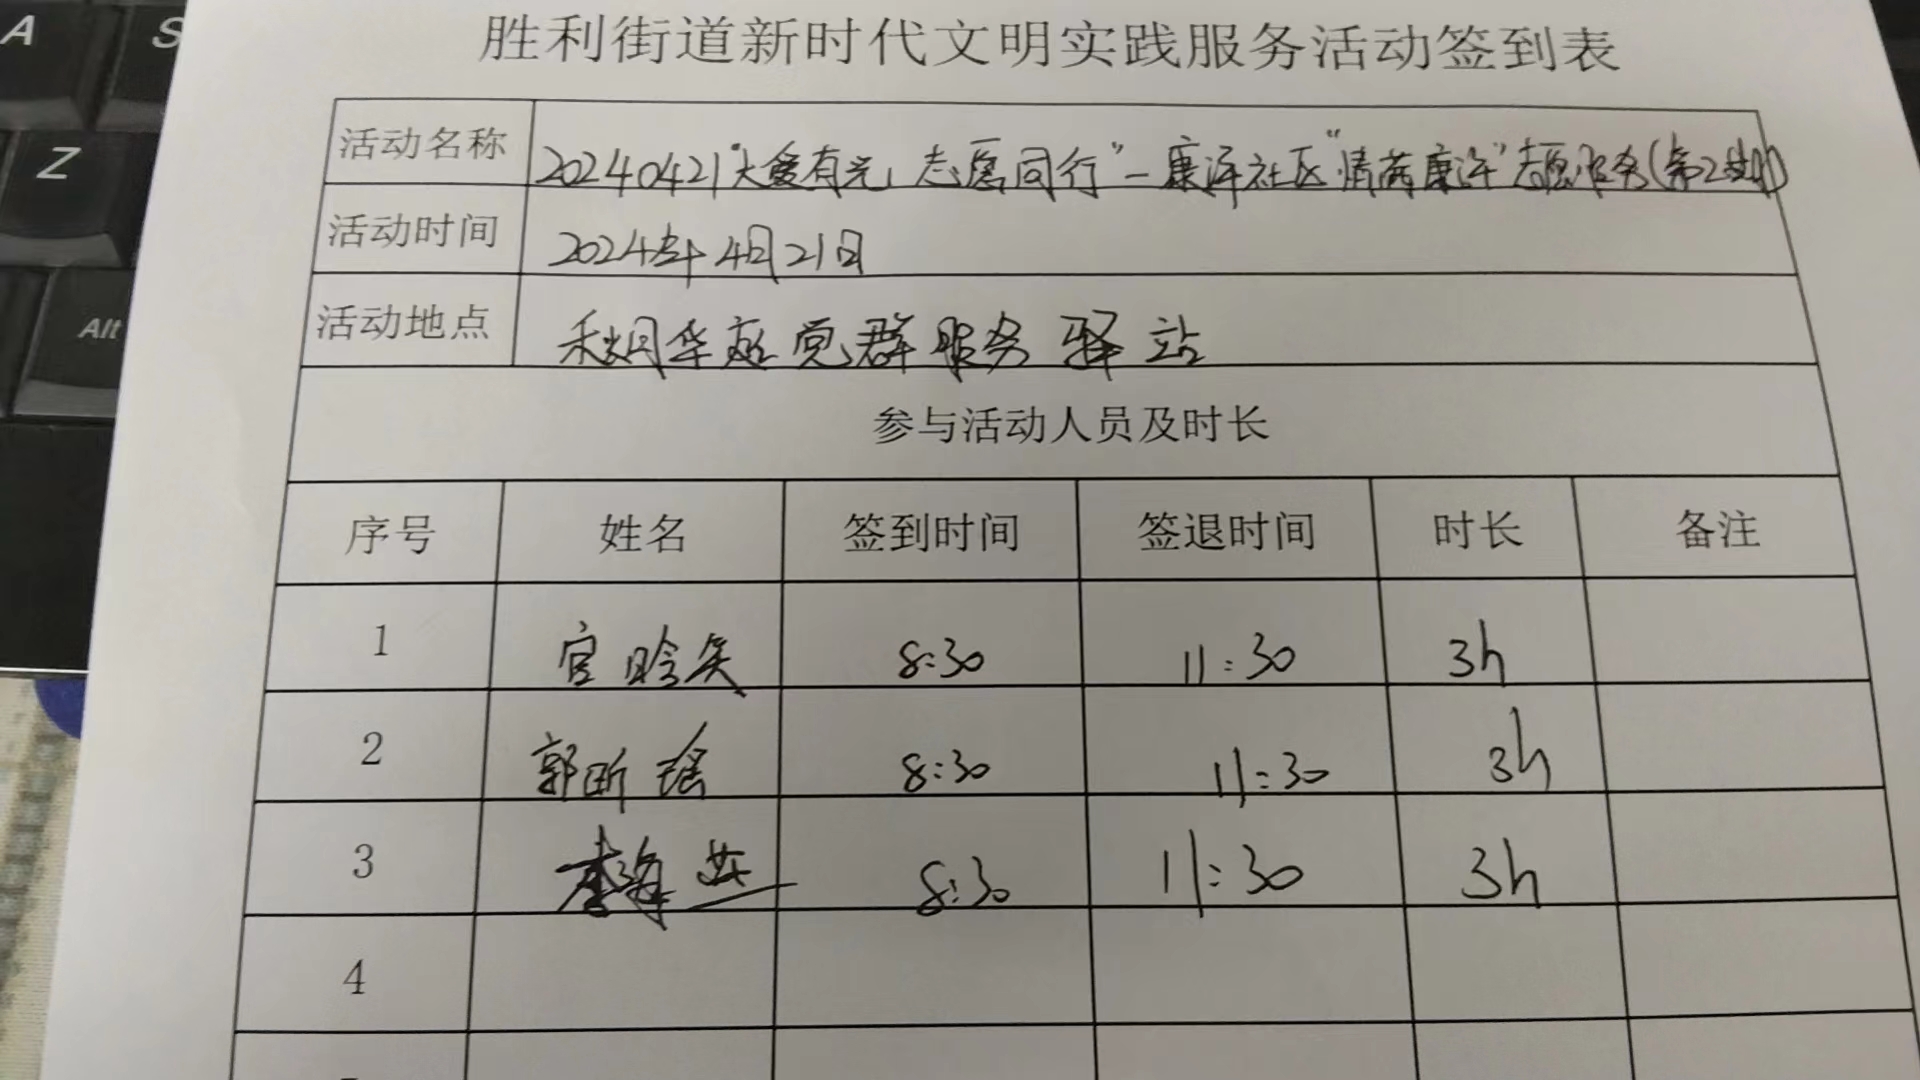 A
S
Z
Alt
胜利街道新时代文明实践服务活动签到表
活动名称 20240421"大爱有光，志愿同行"—康泽社区"情满康泽"志愿服务(第2期)
活动时间 2024年4月21日
活动地点 秋月华庭党群服务驿站
参与活动人员及时长
序号 姓名 签到时间 签退时间 时长 备注
1 官 8:30 11:30 3h
2 郭昕瑶 8:30 11:30 3h
3 李海 8:30 11:30 3h
4